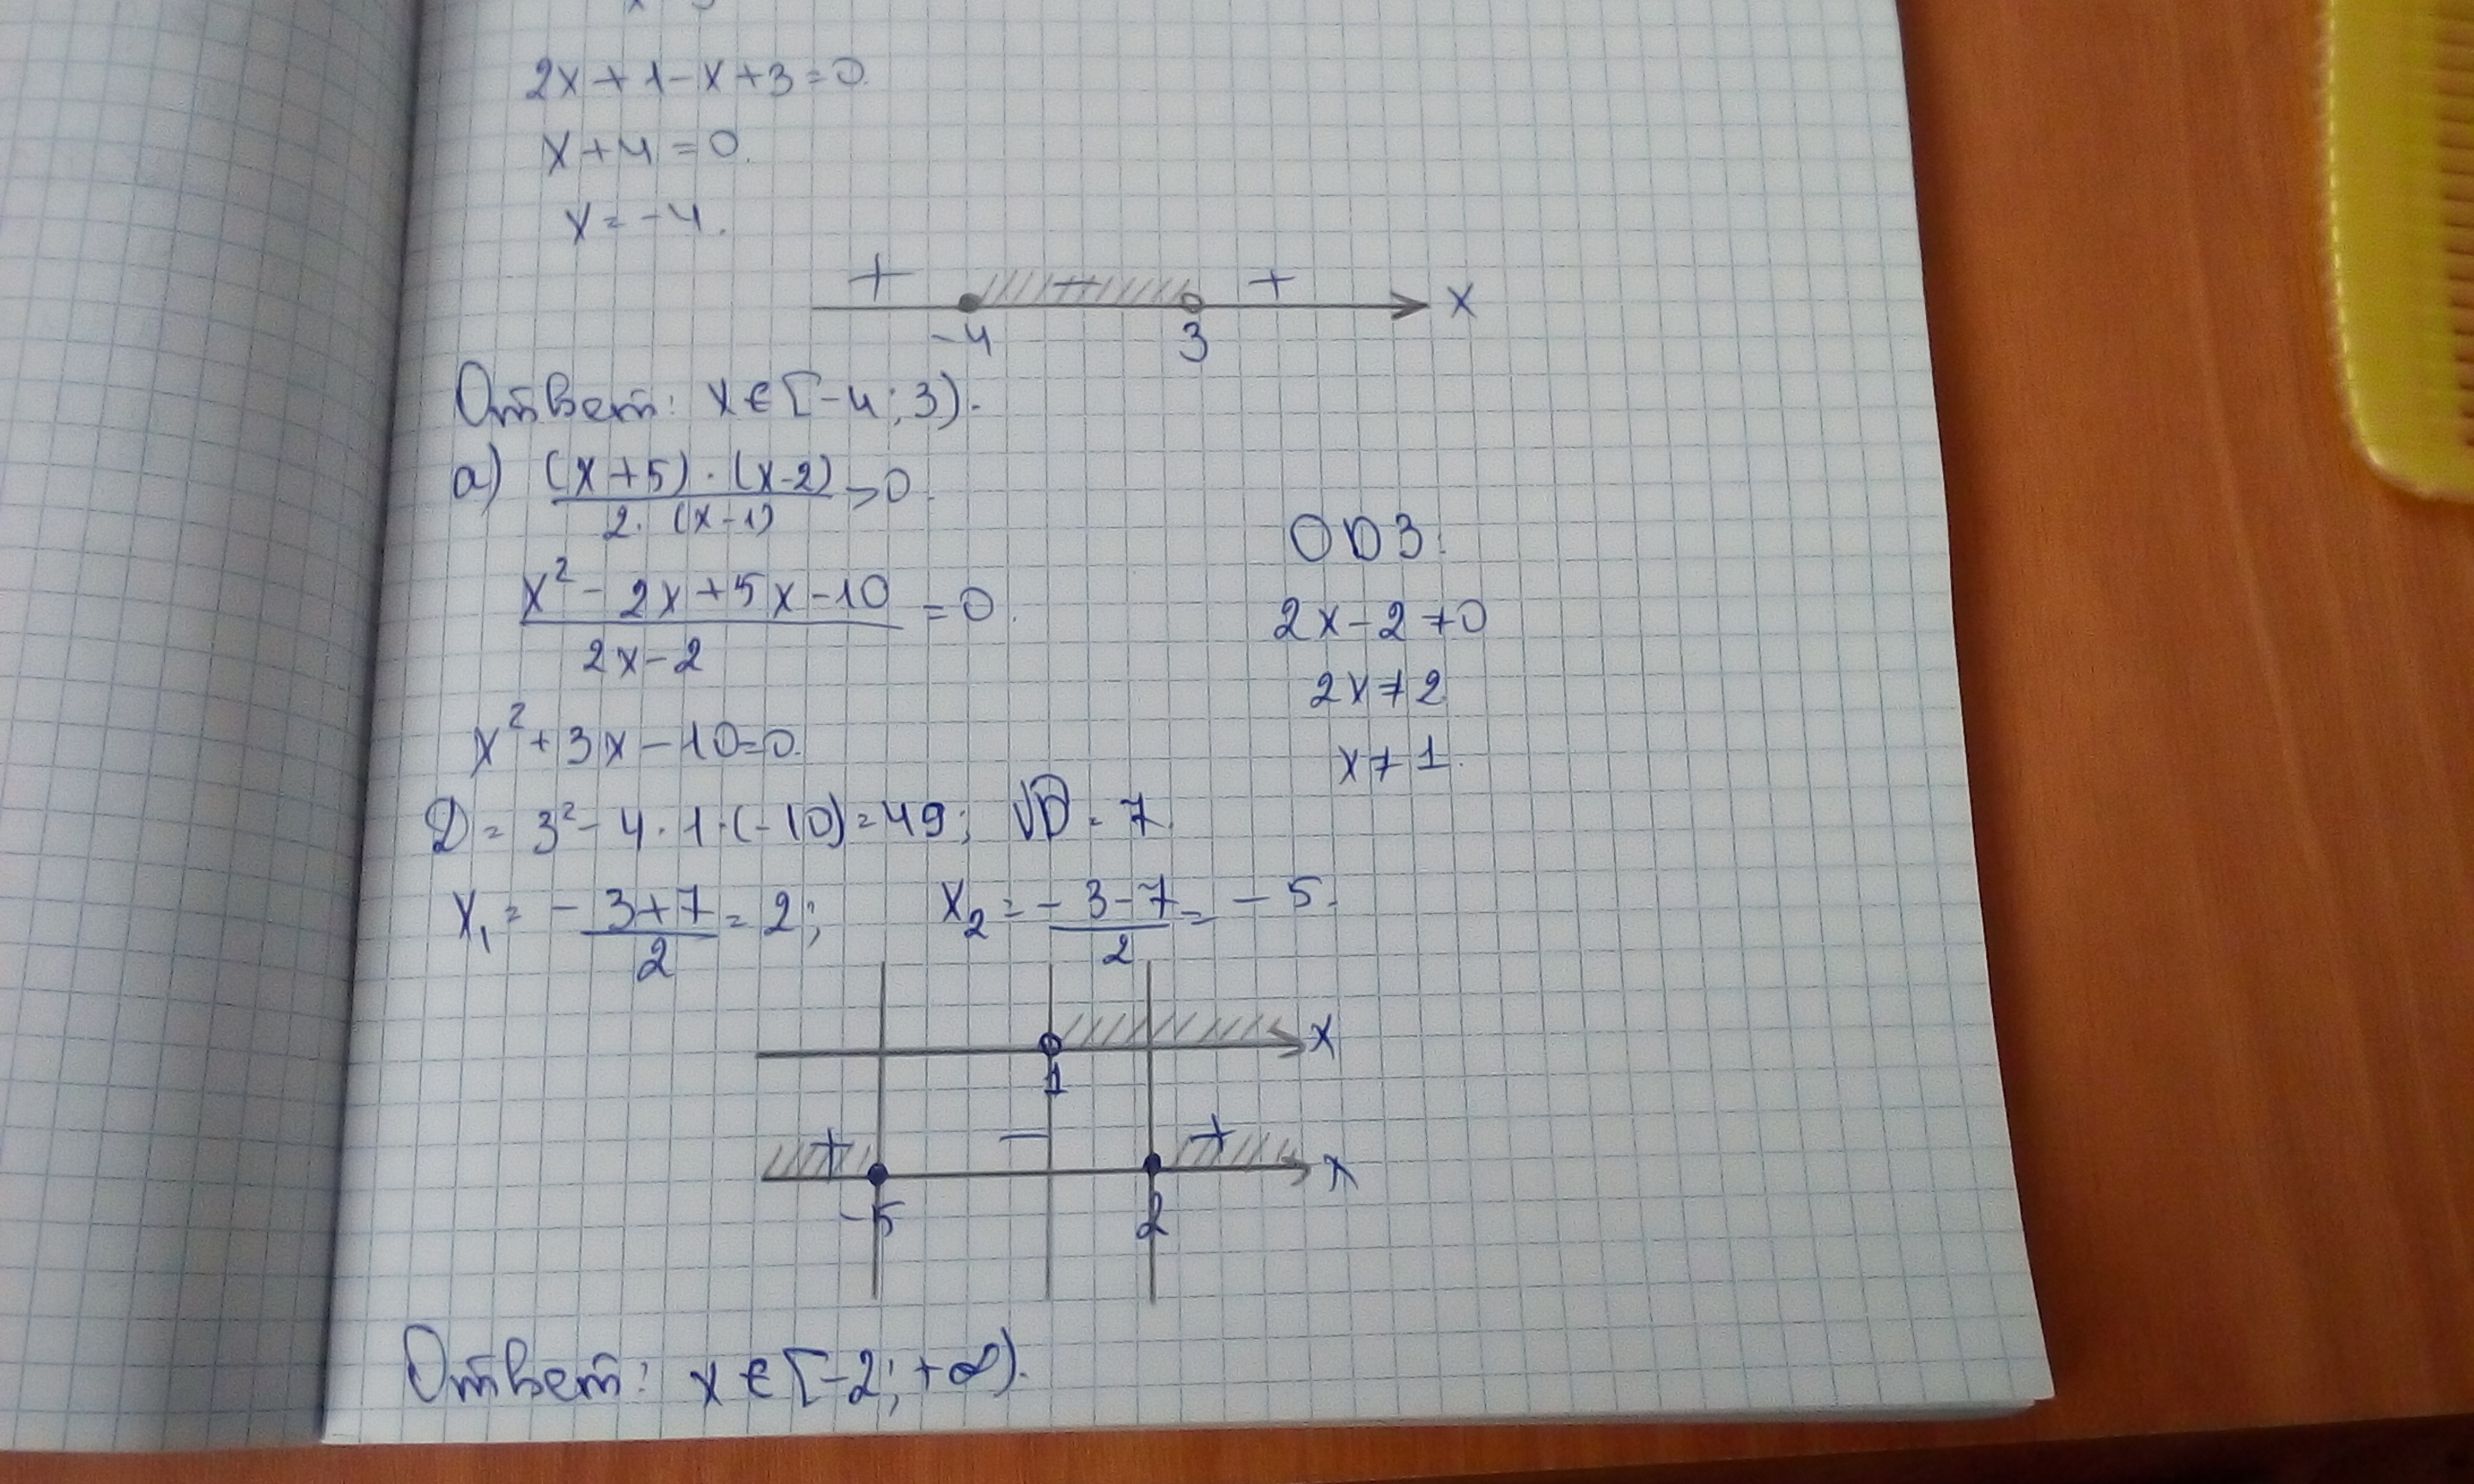 2x+1-x+3=0.
x+4=0.
x=-4.
+ - + x
-4 3
Ответ: x∈[-4;3).
а) (x+5)·(x-2)/2·(x-1) >0.
ОDЗ:
x²-2x+5x-10/2x-2 =0.
2x-2≠0
2x≠2
x²+3x-10=0.
x≠1.
D=3²-4·1·(-10)=49; √D=7.
x₁=-3+7/2=2; x₂=-3-7/2=-5.
x
1
+ - + x
-5 2
Ответ: x∈[-2;+∞).